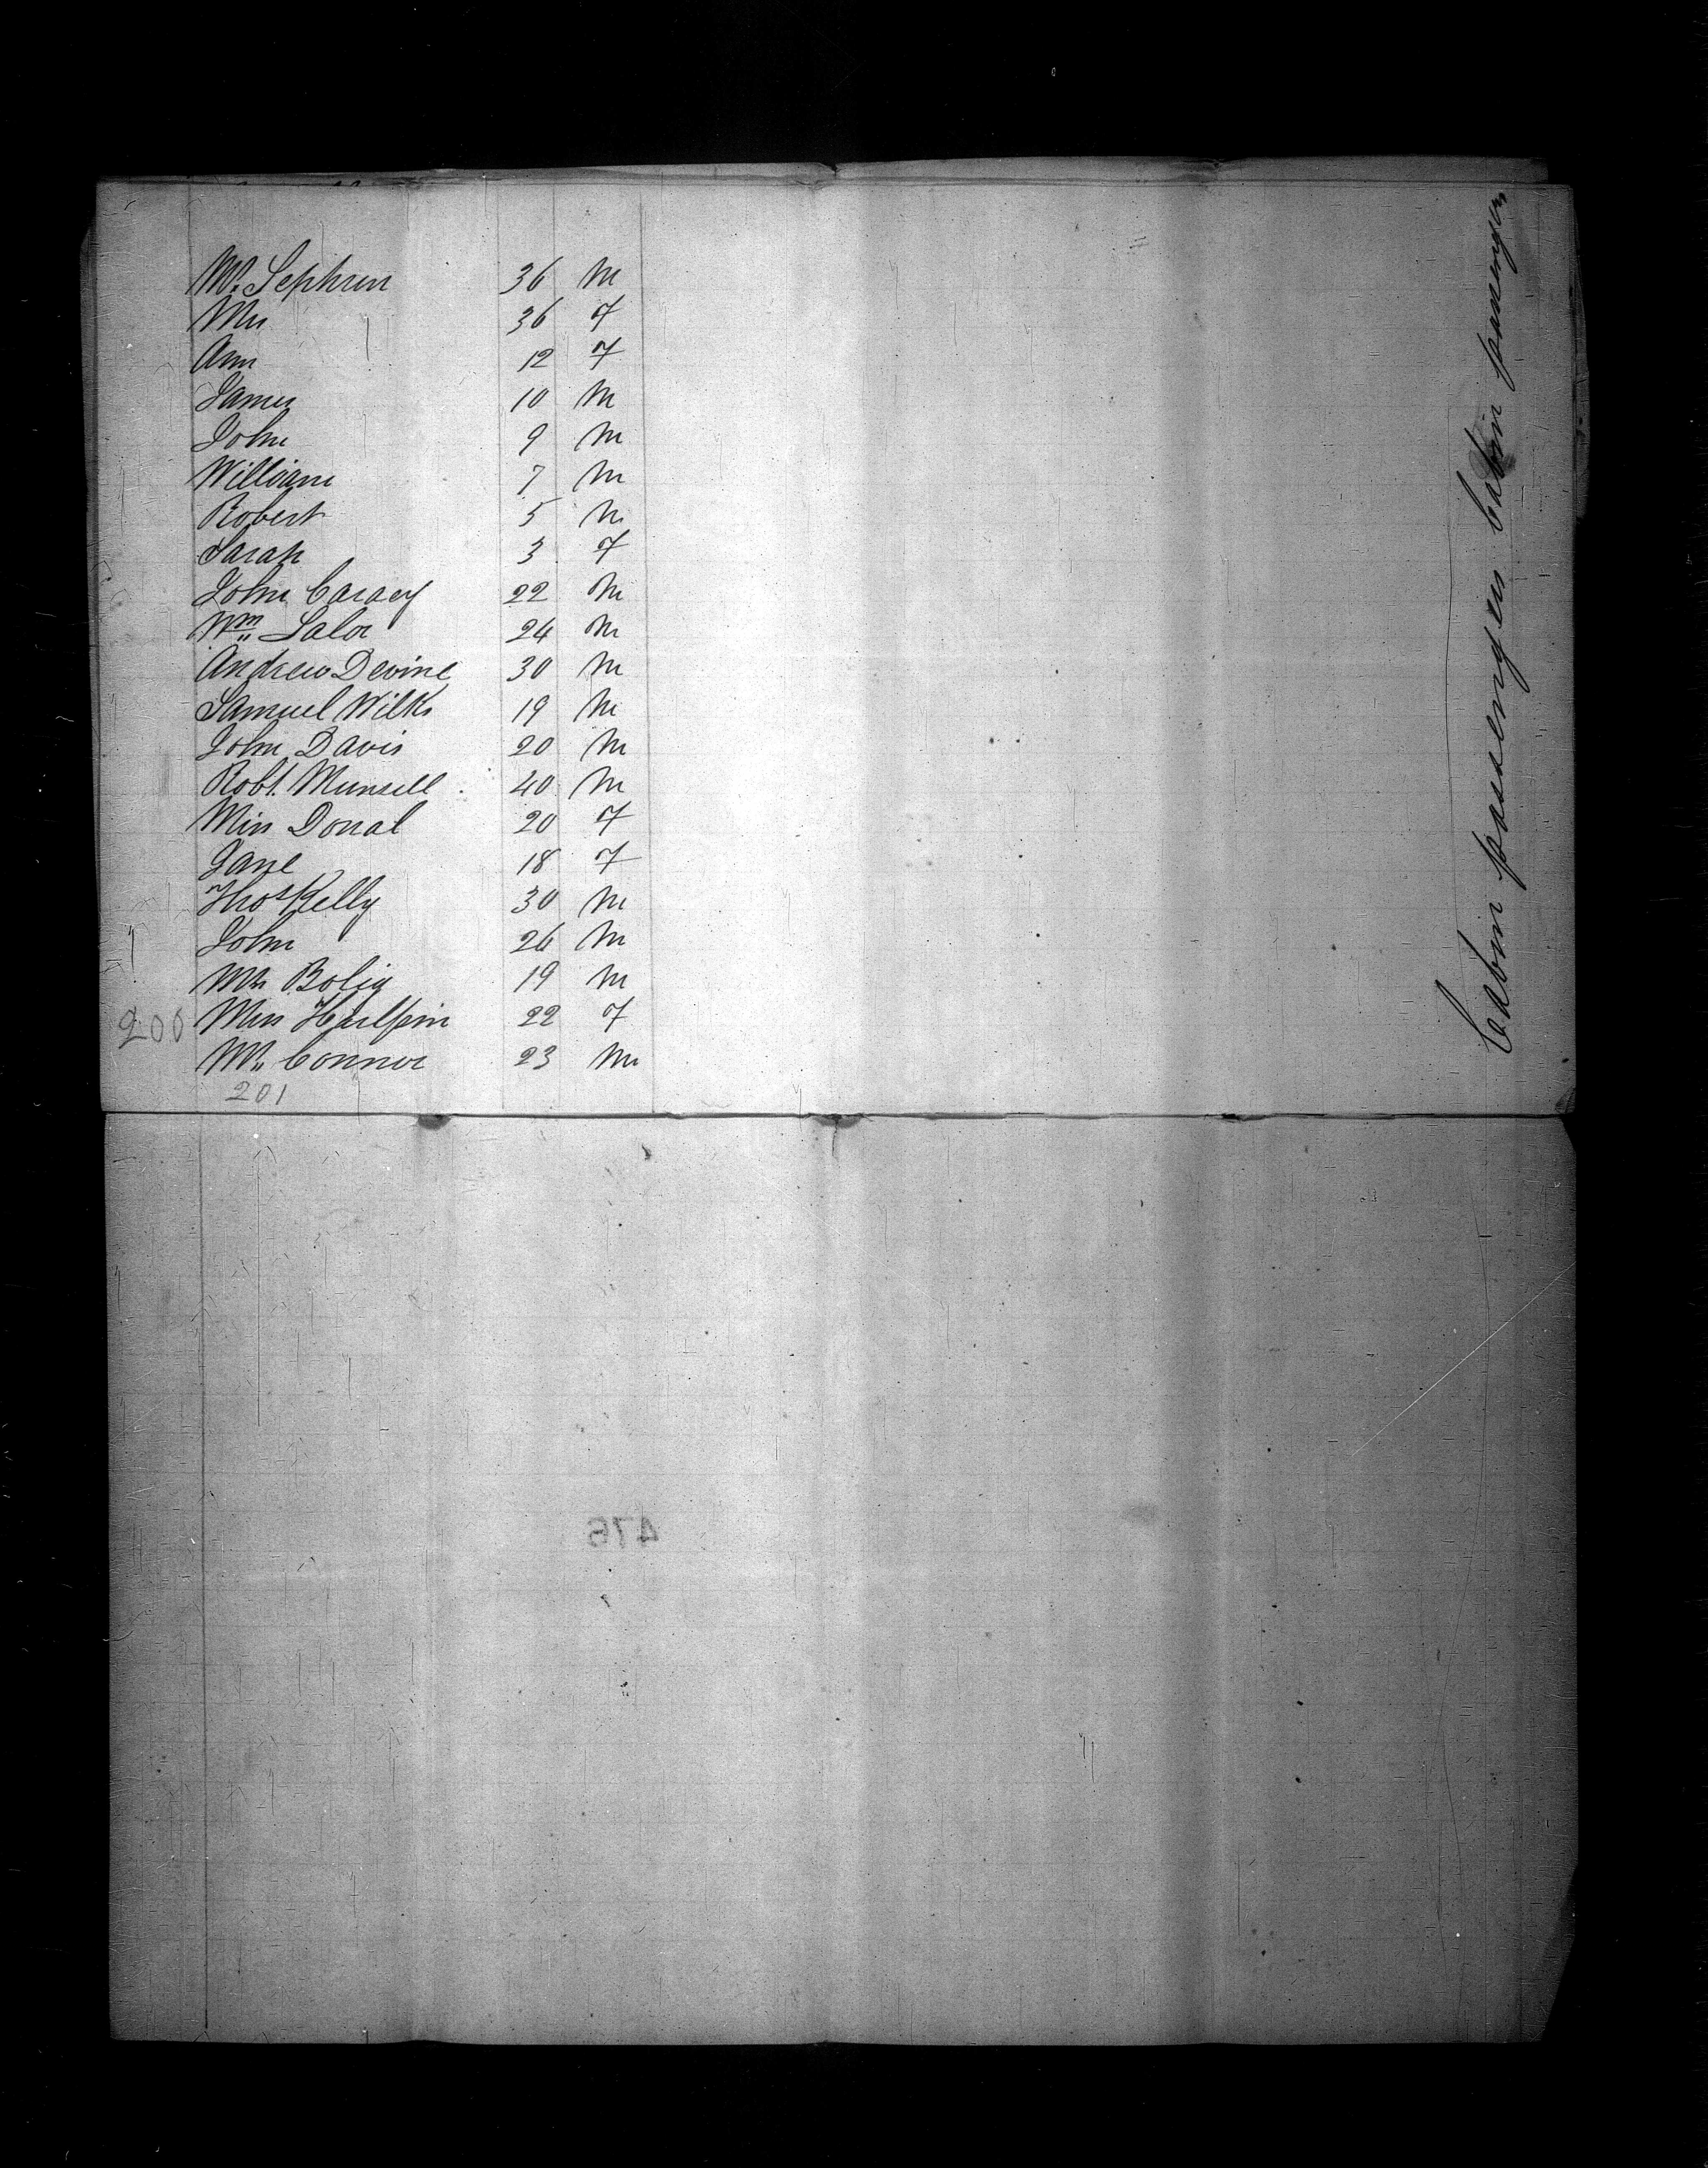 Mr. Sephren 36 M
Mrs 36 F
Ann 12 F
James 10 M
John 9 M
William 7 M
Robert 5 M
Sarah 3 F
John Carsey 22 M
Wm Lalor 24 M
Andrew Devine 30 M
Samuel Wilks 19 M
John Davis 20 M
Robt. Munsell 40 M
Miss Donal 20 F
Jane 18 F
Thos Kelly 30 M
John 26 M
Mr Bolig 19 M
200 Miss Hulfsin 22 F
Mr. Connor 23 M
201
Cabin passengers Cabin passengers
476